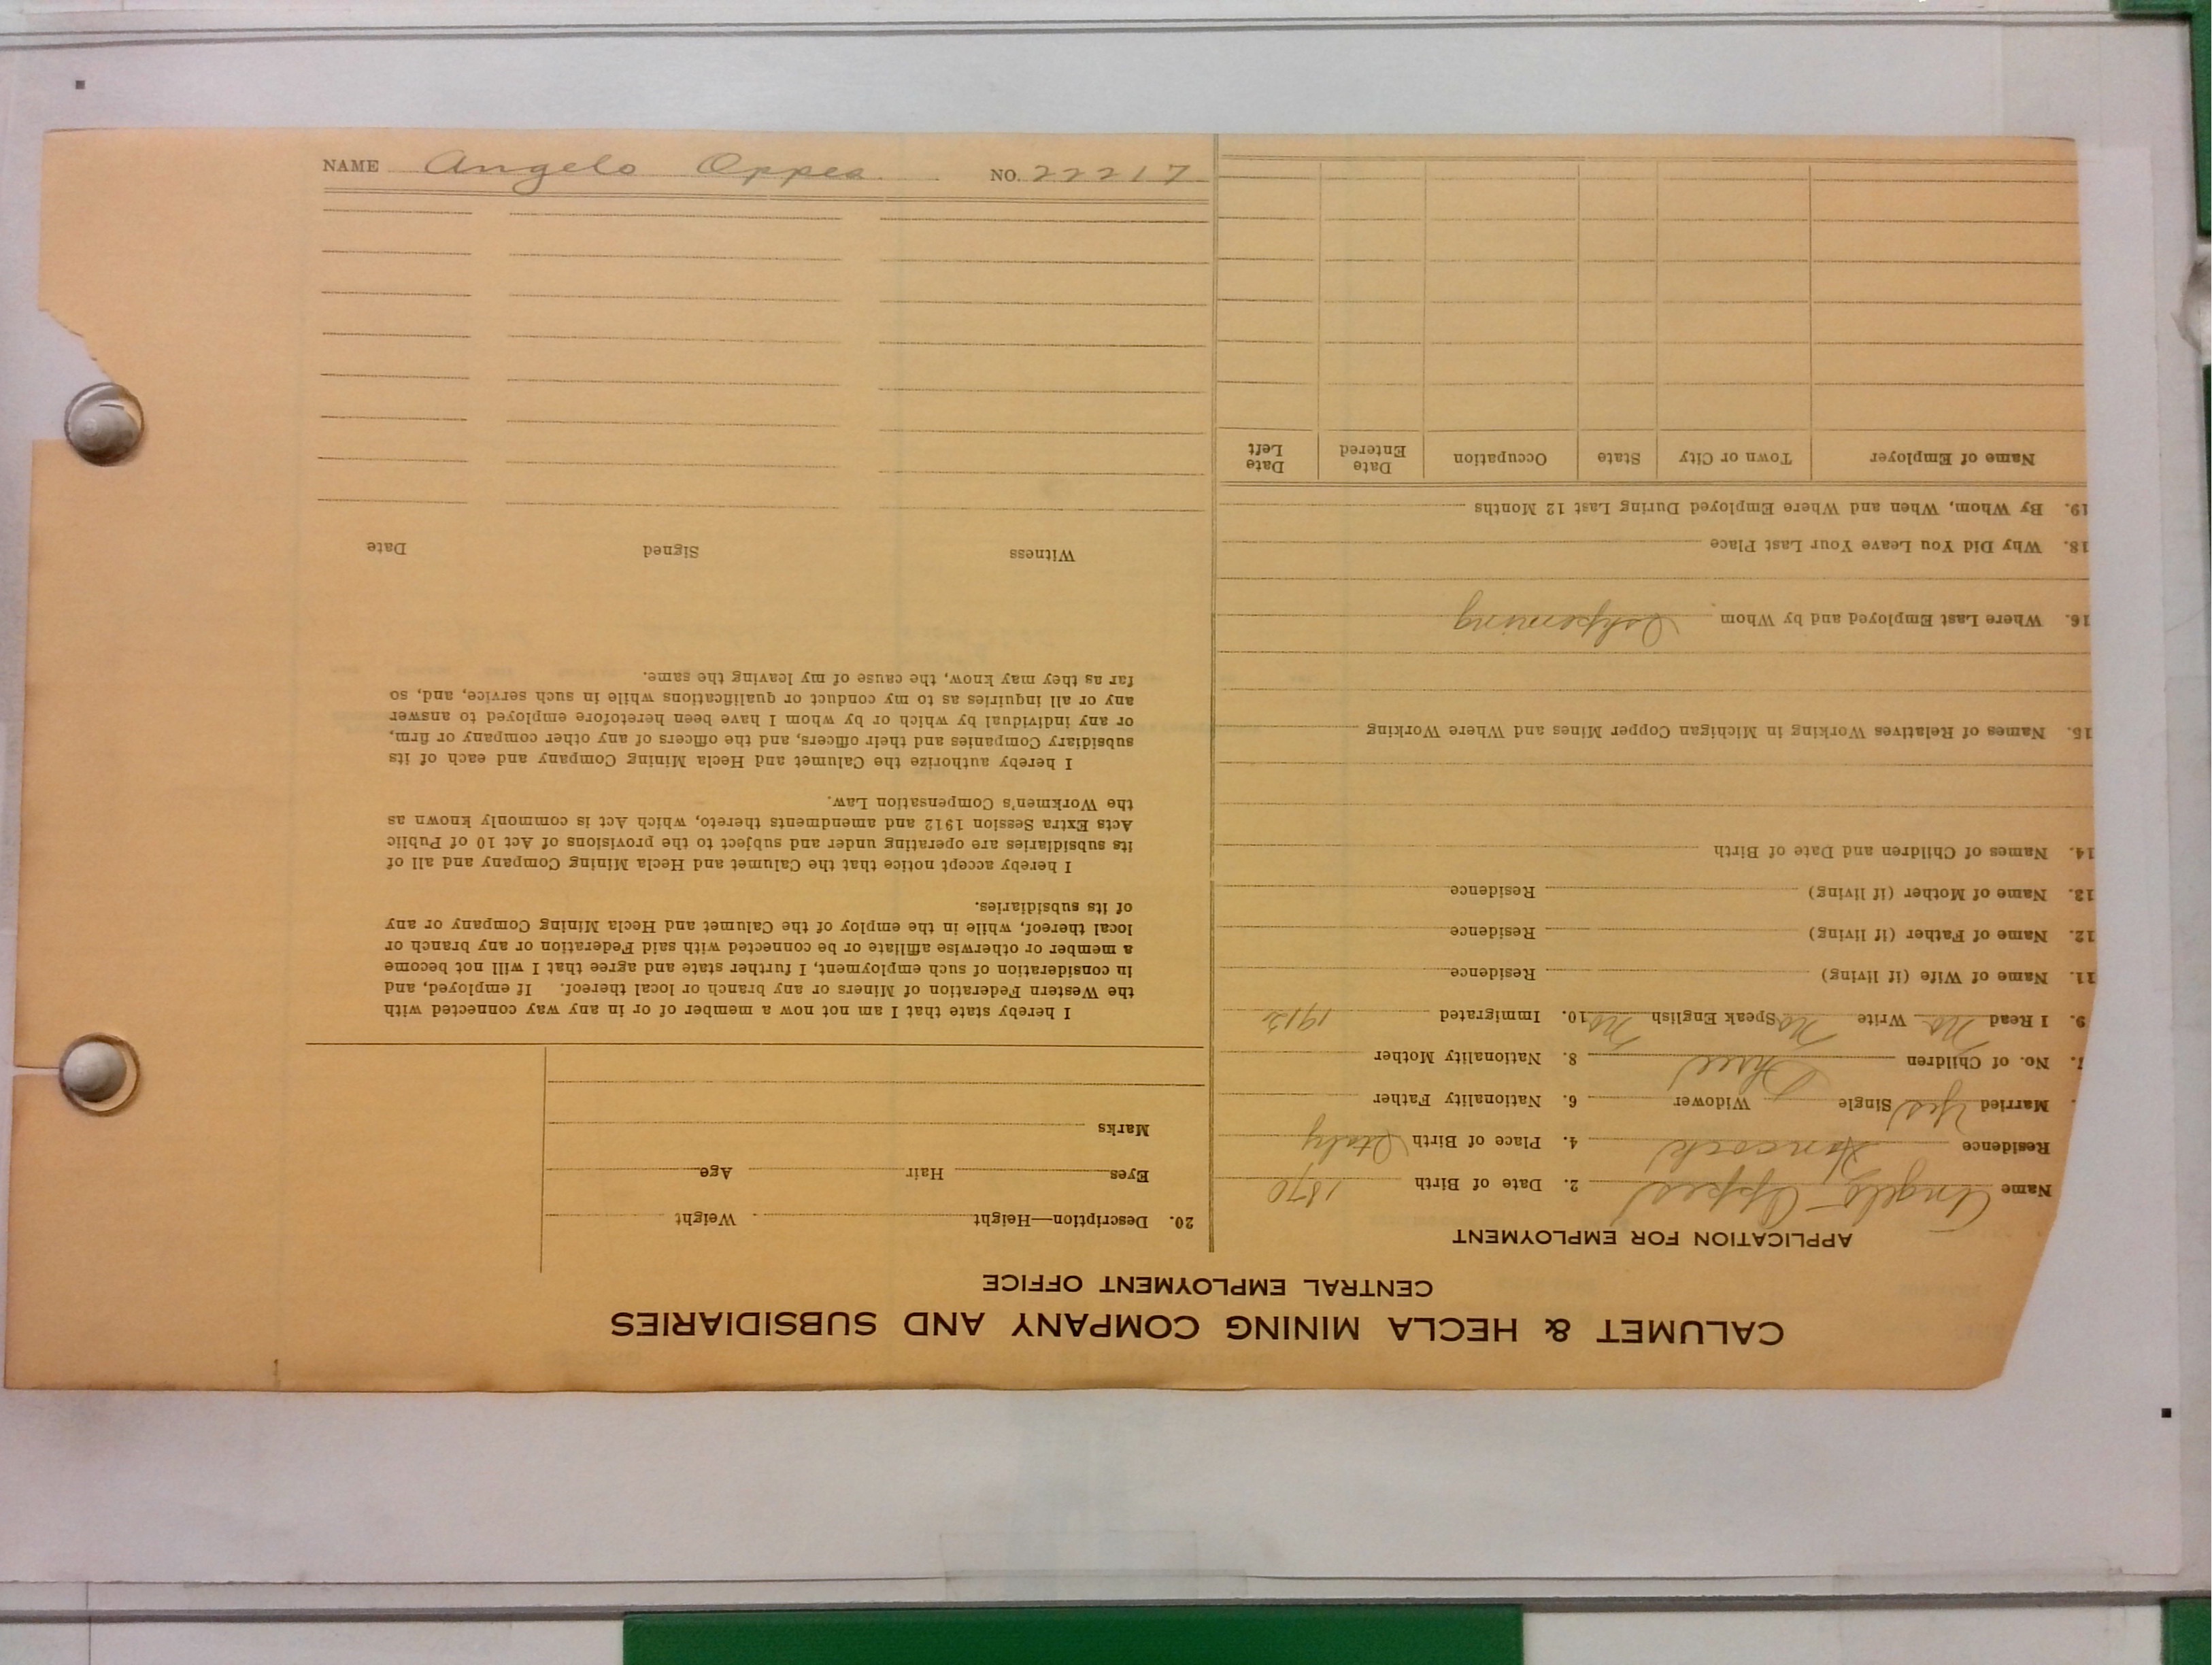 NAME Angelo Oppea NO. 22217
CALUMET & HECLA MINING COMPANY AND SUBSIDIARIES
CENTRAL EMPLOYMENT OFFICE
APPLICATION FOR EMPLOYMENT
Name Angelo Oppea 2. Date of Birth 1870
Residence Hancock 4. Place of Birth Italy
Married Yes Single Widower 6. Nationality Father
7. No. of Children Three 8. Nationality Mother
9. I Read no Write no Speak English no 10. Immigrated 1912
11. Name of Wife (if living) Residence
12. Name of Father (if living) Residence
13. Name of Mother (if living) Residence
14. Names of Children and Date of Birth
15. Names of Relatives Working in Michigan Copper Mines and Where Working
16. Where Last Employed and by Whom Ishpeming
18. Why Did You Leave Your Last Place
19. By Whom, When and Where Employed During Last 12 Months
Name of Employer Town or City State Occupation Date Entered Date Left
20. Description—Height Weight
Eyes Hair Age
Marks
I hereby state that I am not now a member of or in any way connected with
the Western Federation of Miners or any branch or local thereof. If employed, and
in consideration of such employment, I further state and agree that I will not become
a member or otherwise affiliate or be connected with said Federation or any branch or
local thereof, while in the employ of the Calumet and Hecla Mining Company or any
of its subsidiaries.
I hereby accept notice that the Calumet and Hecla Mining Company and all of
its subsidiaries are operating under and subject to the provisions of Act 10 of Public
Acts Extra Session 1912 and amendments thereto, which Act is commonly known as
the Workmen's Compensation Law.
I hereby authorize the Calumet and Hecla Mining Company and each of its
subsidiary Companies and their officers, and the officers of any other company or firm,
or any individual by which or by whom I have been heretofore employed to answer
any or all inquiries as to my conduct or qualifications while in such service, and, so
far as they may know, the cause of my leaving the same.
Witness Signed Date